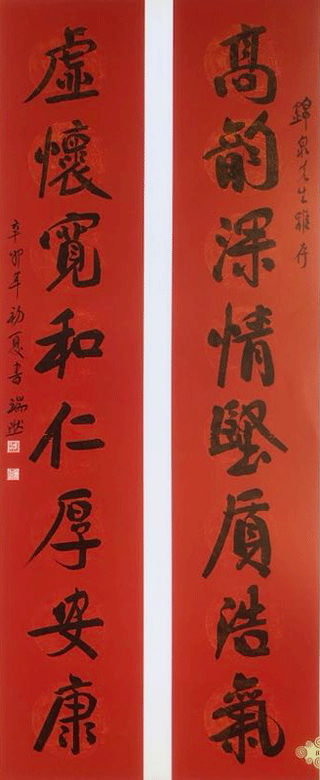 錦泉先生雅存
高韵深情堅质浩氣
虛懷寬和仁厚安康
辛卯年初夏書瑞然